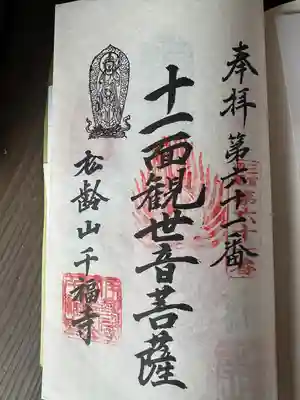 奉拝 第六十一番
十一面観世音菩薩
松齢山千福寺